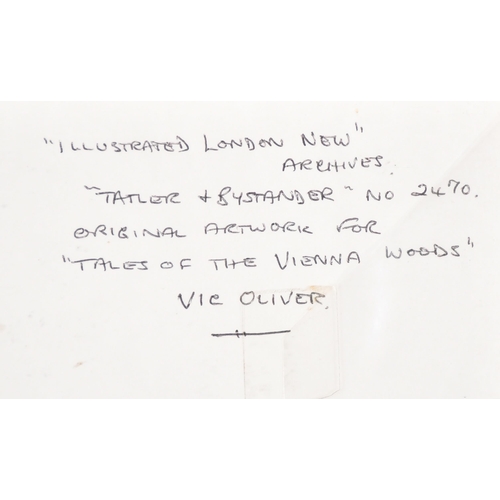 "ILLUSTRATED LONDON NEW"
ARCHIVES.
"TATLER + BYSTANDER" NO 2470.
ORIGINAL ARTWORK FOR
"TALES OF THE VIENNA WOODS"
VIC OLIVER.